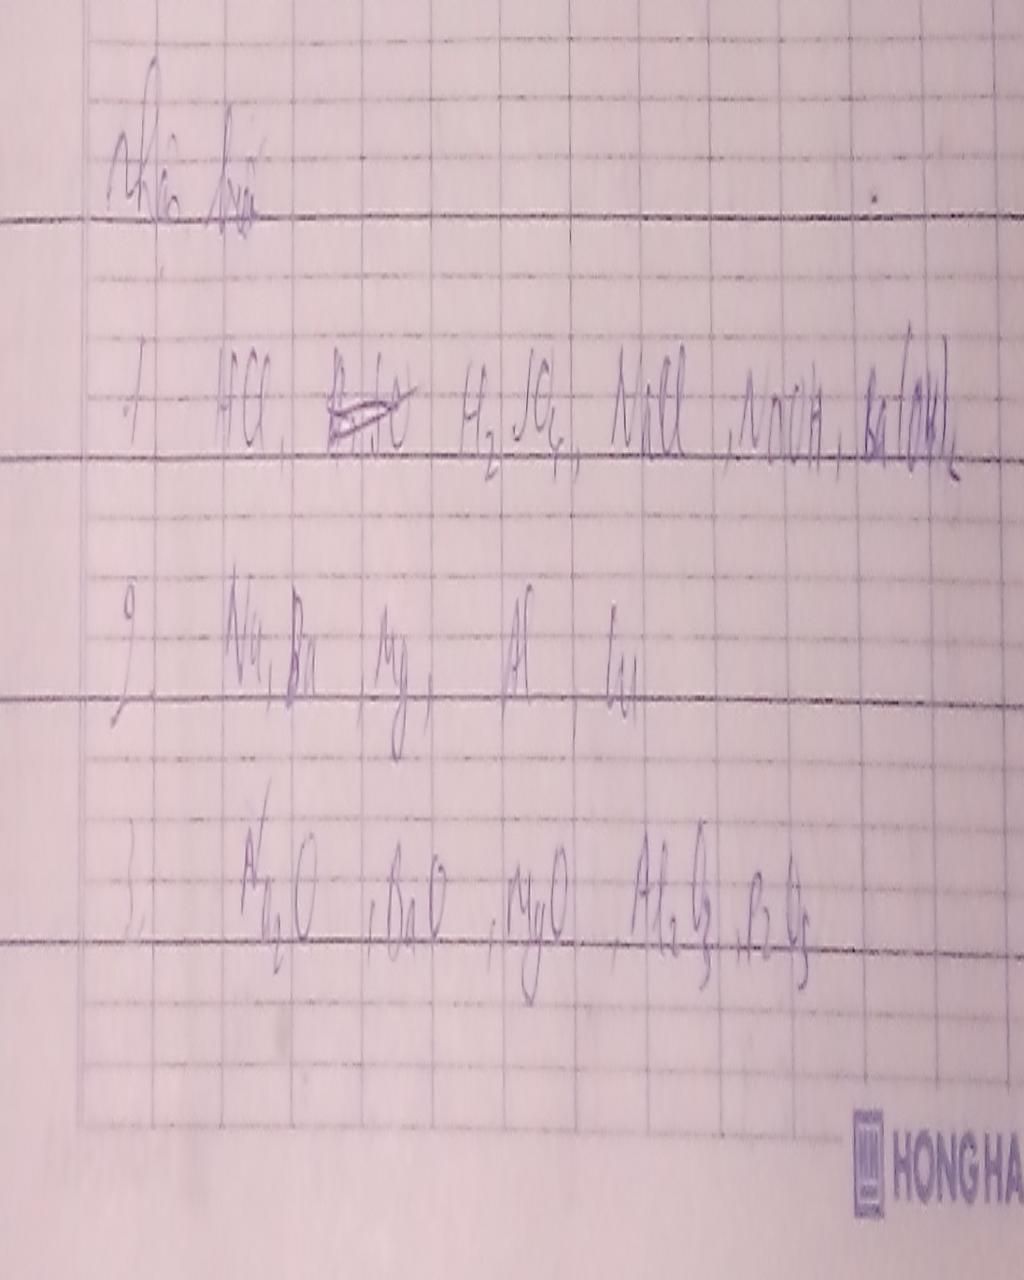 1 HCl, H₂SO₄, NaCl, NaOH, Ba(OH)₂
2. Na, Ba, Mg, Al, Cu
3. Na₂O, BaO, MgO, Al₂O₃, P₂O₅
HONG HA